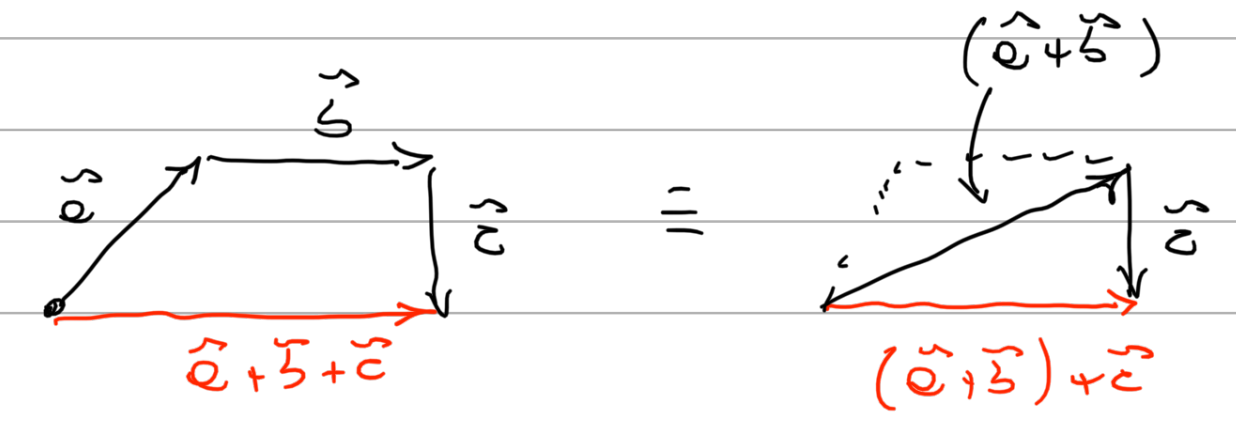 (a⃗ + b⃗)
b⃗
a⃗
c⃗
=
c⃗
a⃗ + b⃗ + c⃗
(a⃗ + b⃗) + c⃗